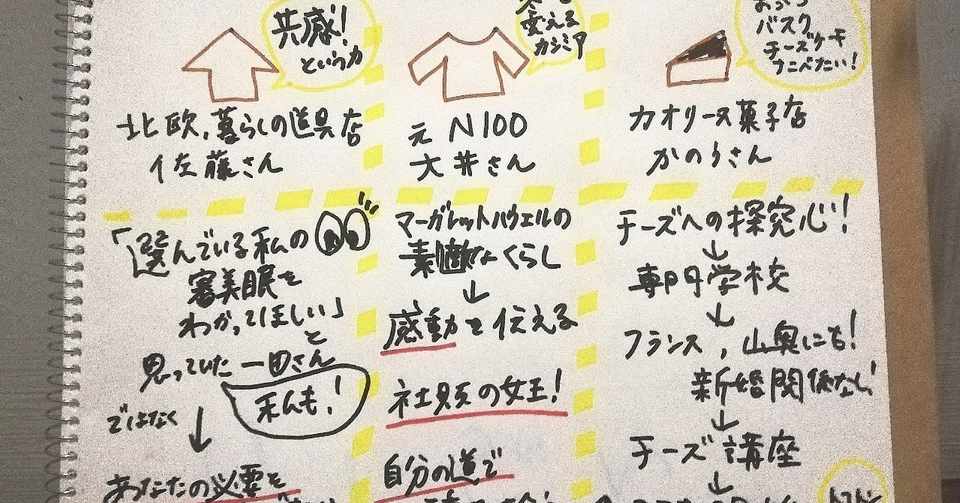 共感!
という力
北欧、暮らしの道具店
佐藤さん
「選んでいる私の
審美眼を
わかってほしい」
と
思っていた
さん
私も!
ではなく
↓
あなたの必要を
変える
カシミア
元 N100
大井さん
マーガレットハウエルの
素敵なくらし
↓
感動を伝える
社販の女王!
自分の道で
バスク
チーズケーキ
カオリーヌ菓子店
かのうさん
チーズへの探究心!
↓
専門学校
↓
フランス、山奥にも!
新婚関係なし!
↓
チーズ講座
↓